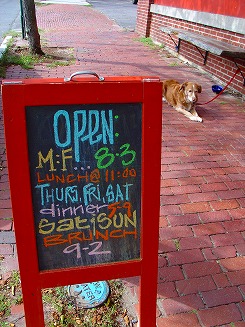 OPEN:
M-F... 8-3
LUNCH@11:00
THURS, FRI, SAT
dinner 5-9
SAT/SUN
BRUNCH
9-2